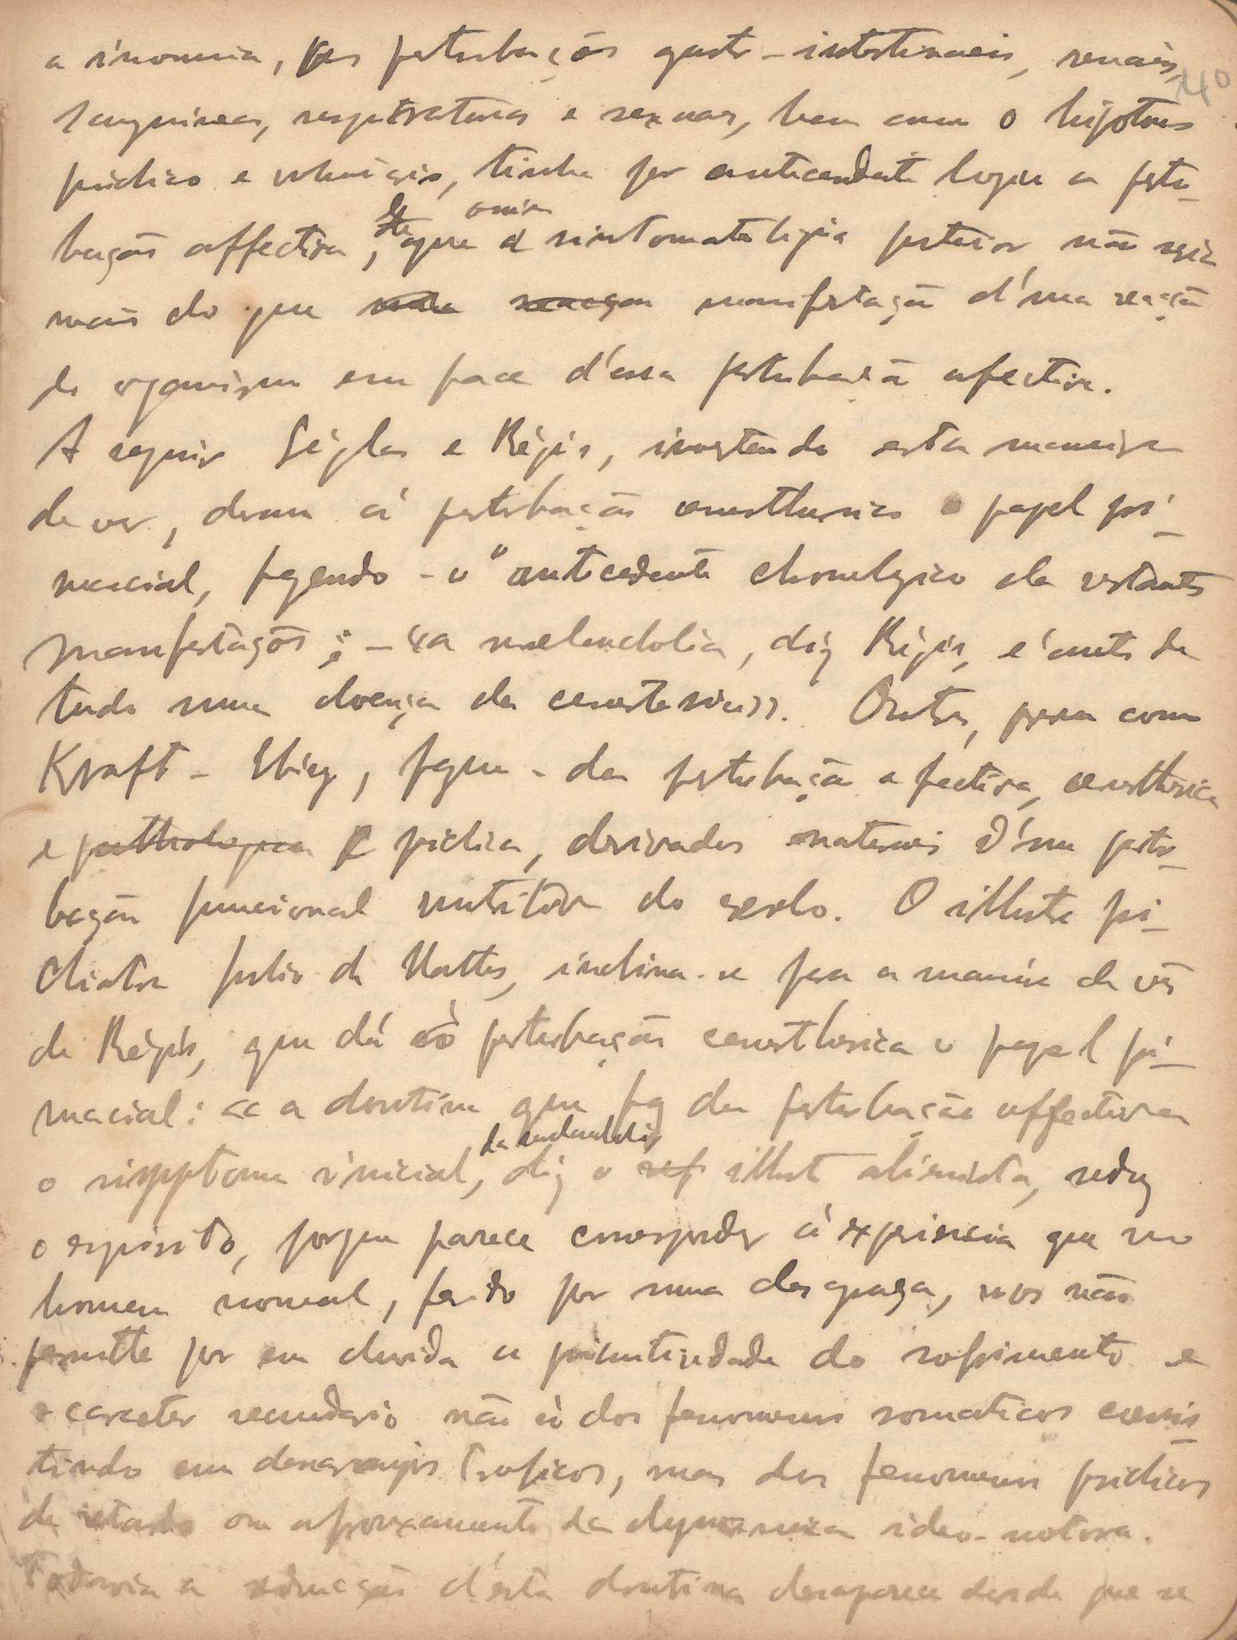 a insomnia, as perturbações gastro-intestinaes, renaes, 40
sanguineas, respiratorias e sexuaes, bem como o
psichico e, tinha por antecendente logico a pertu-
bação affectiva, de que a sintomatologia posterior não seria
mais do que uma reacção manifestação d'uma reacção
do organismo em face d'essa perturbação afectiva.
A seguir Séglas e Régis, invertendo esta maneira
de ver, deram á perturbação cenesthesica o papel pri-
macial, fazendo-o antecedente chronologico de restantes
manifestações; – «a melancholia, diz Régis, é antes de
tudo uma doença da cenestesia». Outros, porem como
Kraft-Ebing, fazem-da perturbação afectiva, cenesthesica
e pathologica psichica, derivados materiaes d'uma pertur-
bação funcional nutritiva do cerebro. O illustre psi-
chiatra Julio de Mattos, inclina-se para a maneira de vêr
de Régis, que dá á perturbação cenesthesica o papel pri-
macial: «a doutrina que faz da perturbação affectiva
o symptoma inicial, da melancholia, diz o illustre alienista, seduz
o espirito, porque parece corresponder á experiencia que no
homem normal, ferido por uma desgraça, nos não
permitte por em duvida a primitividade do sofrimento e
o caracter secundario não só dos fenomenos somaticos consis-
tindo em desarranjos troficos, mas dos fenomenos psichicos
de retardo ou afrouxamento da dynamica ideo-motora.
Todavia a seducção d'esta doutrina desaparece desde que se